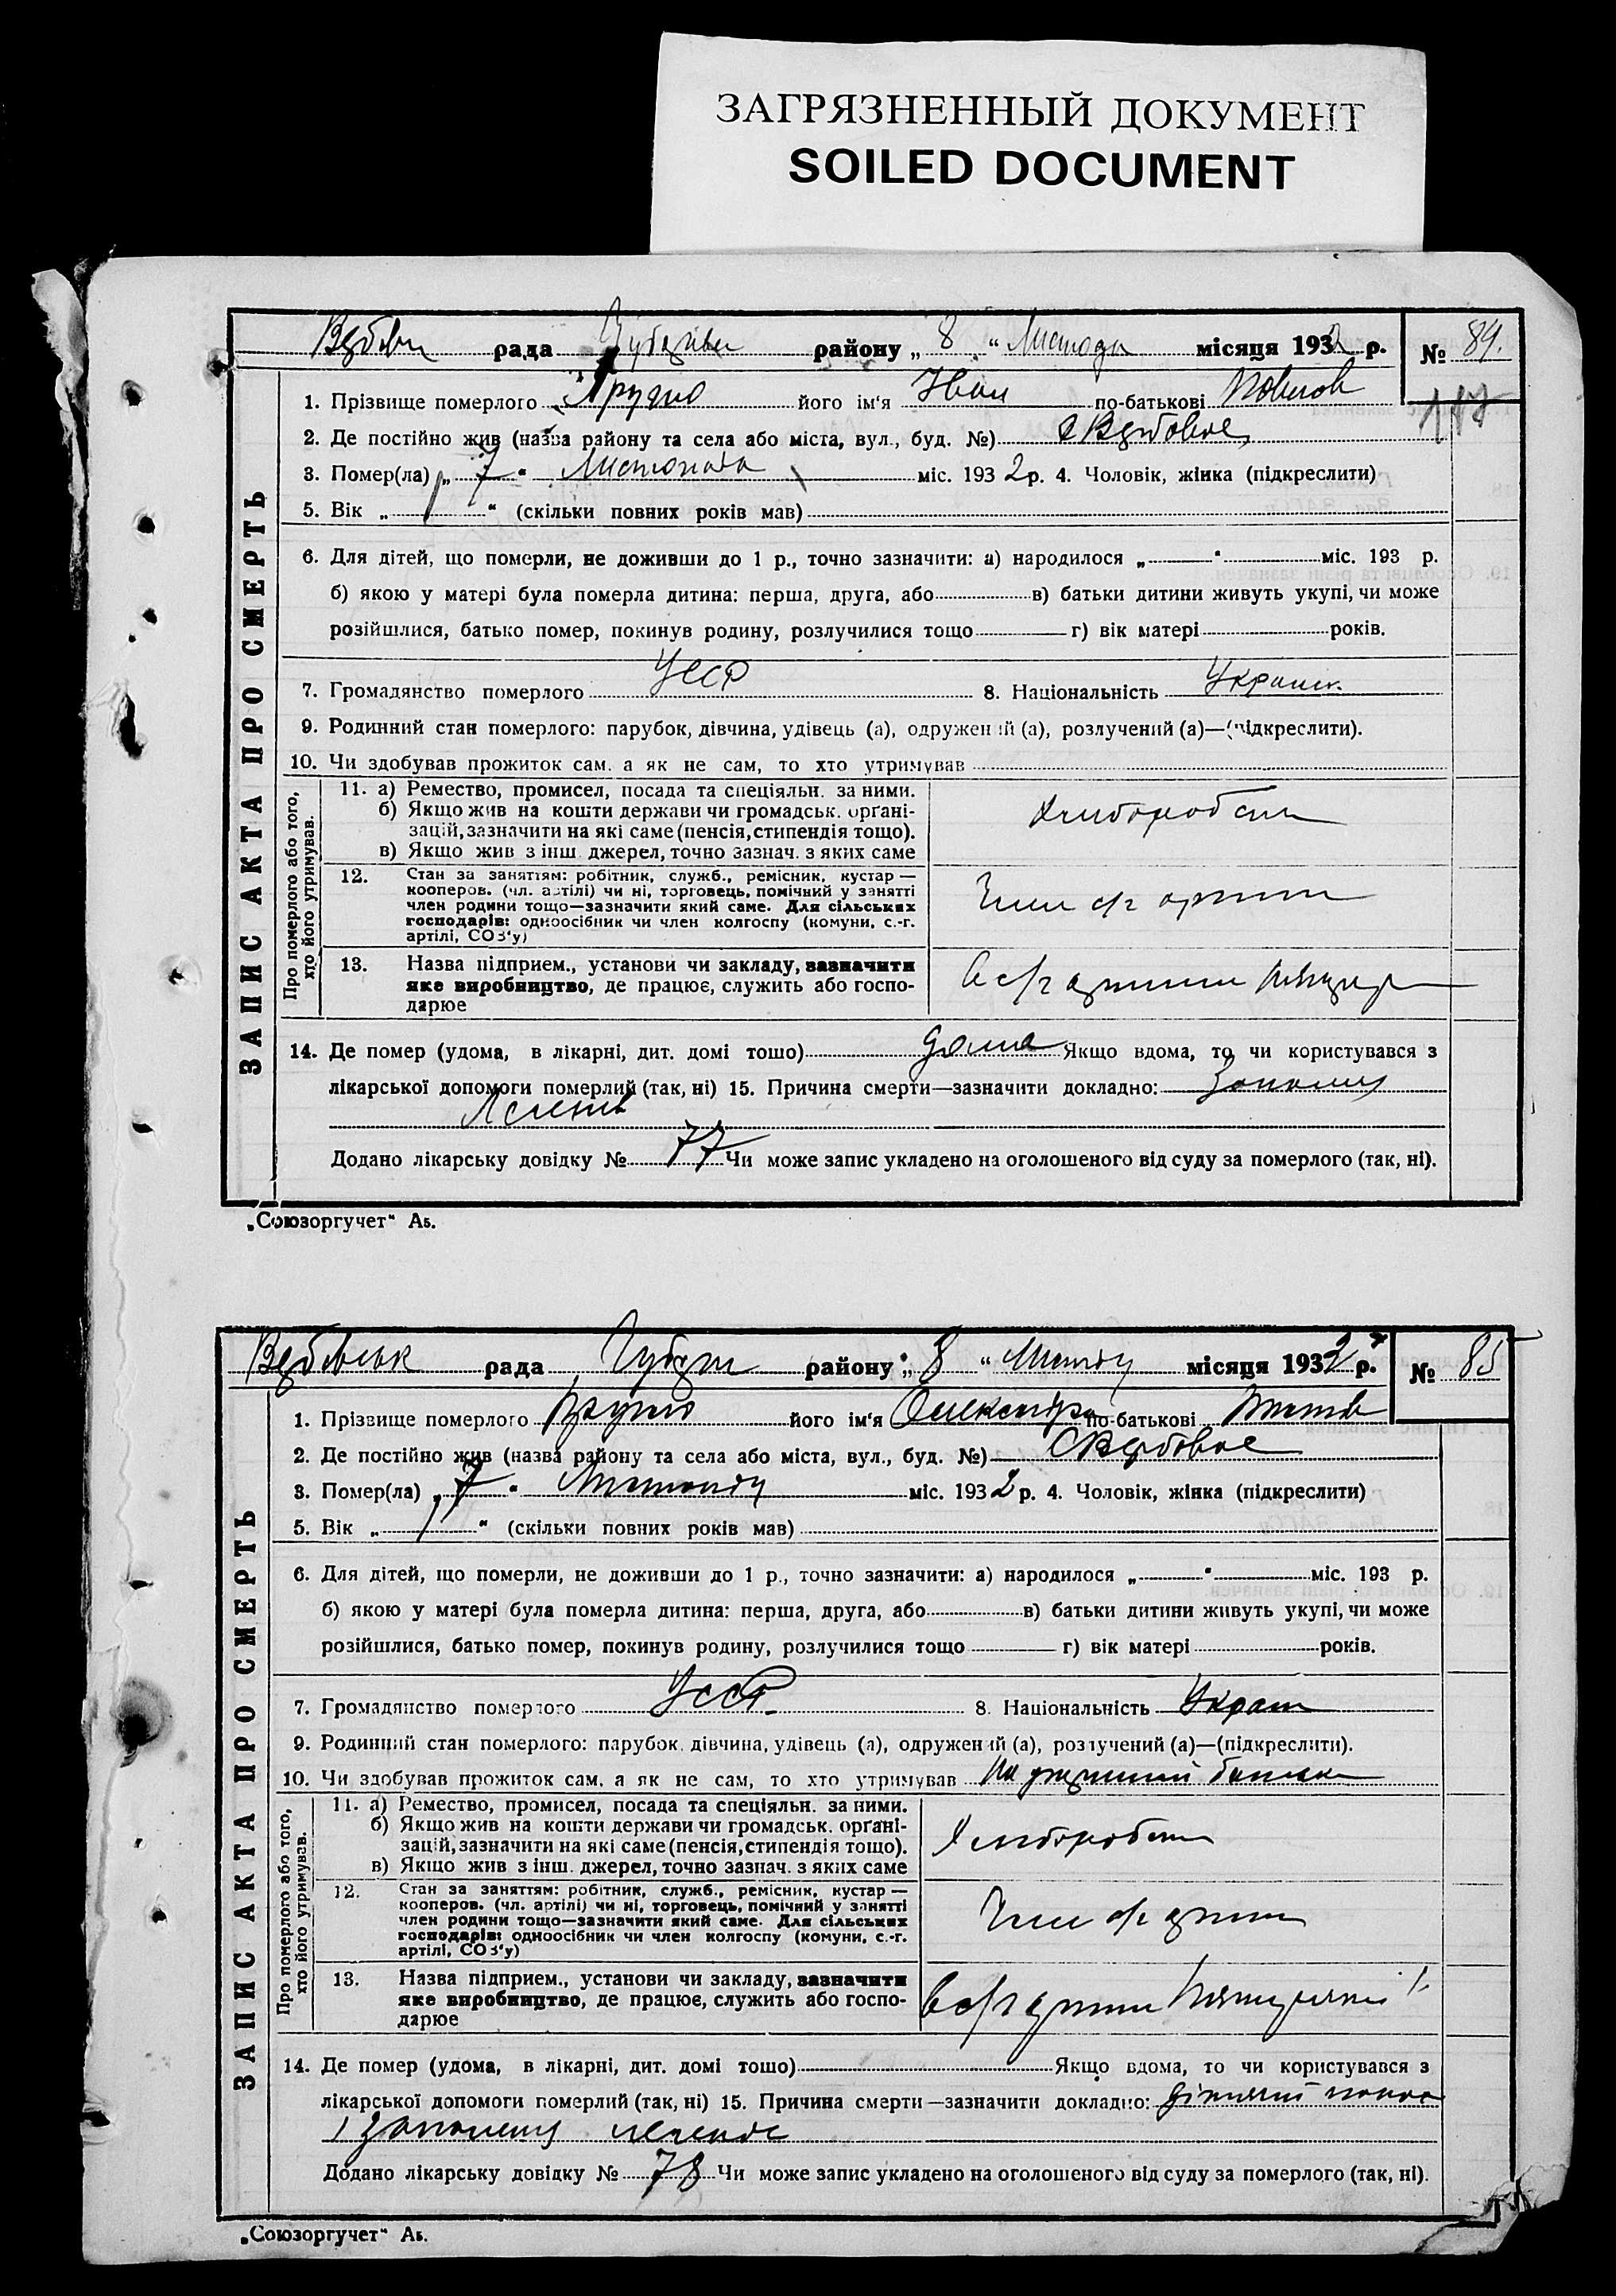 ЗАГРЯЗНЕННЫЙ ДОКУМЕНТ
SOILED DOCUMENT
рада району „ 8 “ місяця 1932 р. № 84.
1. Прізвище померлого його ім'я Іван по-батькові
2. Де постійно жив (назва району та села або міста, вул., буд. №) с Вербовое
3. Помер(ла) „ 7 “ Листопада міс. 193 2 р. 4. Чоловік, жінка (підкреслити)
5. Вік „ 1 “ (скільки повних років мав)
6. Для дітей, що померли, не доживши до 1 р., точно зазначити: а) народилося „ “ міс. 193 р.
б) якою у матері була померла дитина: перша, друга, або в) батьки дитини живуть укупі, чи може
розійшлися, батько помер, покинув родину, розлучилися тощо г) вік матері років.
7. Громадянство померлого УССР 8. Національність
9. Родинний стан померлого: парубок, дівчина, удівець (а), одружений (а), розлучений (а)—(підкреслити).
10. Чи здобував прожиток сам, а як не сам, то хто утримував
ЗАПИС АКТА ПРО СМЕРТЬ
Про померлого або того,
хто його утримував.
11. а) Ремество, промисел, посада та спеціяльн. за ними.
б) Якщо жив на кошти держави чи громадськ. органі-
зацій, зазначити на які саме (пенсія, стипендія тощо).
в) Якщо жив з інш. джерел, точно зазнач. з яких саме
12. Стан за заняттям: робітник, служб., ремісник, кустар —
кооперов. (чл. артілі) чи ні, торговець, помічний у занятті
член родини тощо—зазначити який саме. Для сільських
господарів: одноосібник чи член колгоспу (комуни, с.-г.
артілі, СОЗ'у)
13. Назва підприєм., установи чи закладу, зазначити
яке виробництво, де працює, служить або госпо-
дарює
14. Де помер (удома, в лікарні, дит. домі тощо) дома Якщо вдома, то чи користувався з
лікарської допомоги померлий (так, ні) 15. Причина смерти—зазначити докладно:
Додано лікарську довідку № 77 Чи може запис укладено на оголошеного від суду за померлого (так, ні).
„Союзоргучет“ А5.
рада району „ 8 “ місяця 1932 р. № 85
1. Прізвище померлого його ім'я по-батькові
2. Де постійно жив (назва району та села або міста, вул., буд. №) С Вербовое
3. Помер(ла) „ 7 “ міс. 193 2 р. 4. Чоловік, жінка (підкреслити)
5. Вік „ 1 “ (скільки повних років мав)
6. Для дітей, що померли, не доживши до 1 р., точно зазначити: а) народилося „ “ міс. 193 р.
б) якою у матері була померла дитина: перша, друга, або в) батьки дитини живуть укупі, чи може
розійшлися, батько помер, покинув родину, розлучилися тощо г) вік матері років.
7. Громадянство померлого УССР 8. Національність
9. Родинний стан померлого: парубок, дівчина, удівець (а), одружений (а), розлучений (а)—(підкреслити).
10. Чи здобував прожиток сам, а як не сам, то хто утримував
ЗАПИС АКТА ПРО СМЕРТЬ
Про померлого або того,
хто його утримував.
11. а) Ремество, промисел, посада та спеціяльн. за ними.
б) Якщо жив на кошти держави чи громадськ. органі-
зацій, зазначити на які саме (пенсія, стипендія тощо).
в) Якщо жив з інш. джерел, точно зазнач. з яких саме
12. Стан за заняттям: робітник, служб., ремісник, кустар —
кооперов. (чл. артілі) чи ні, торговець, помічний у занятті
член родини тощо—зазначити який саме. Для сільських
господарів: одноосібник чи член колгоспу (комуни, с.-г.
артілі, СОЗ'у)
13. Назва підприєм., установи чи закладу, зазначити
яке виробництво, де працює, служить або госпо-
дарює
14. Де помер (удома, в лікарні, дит. домі тощо) Якщо вдома, то чи користувався з
лікарської допомоги померлий (так, ні) 15. Причина смерти—зазначити докладно:
Додано лікарську довідку № 78 Чи може запис укладено на оголошеного від суду за померлого (так, ні).
„Союзоргучет“ А5.